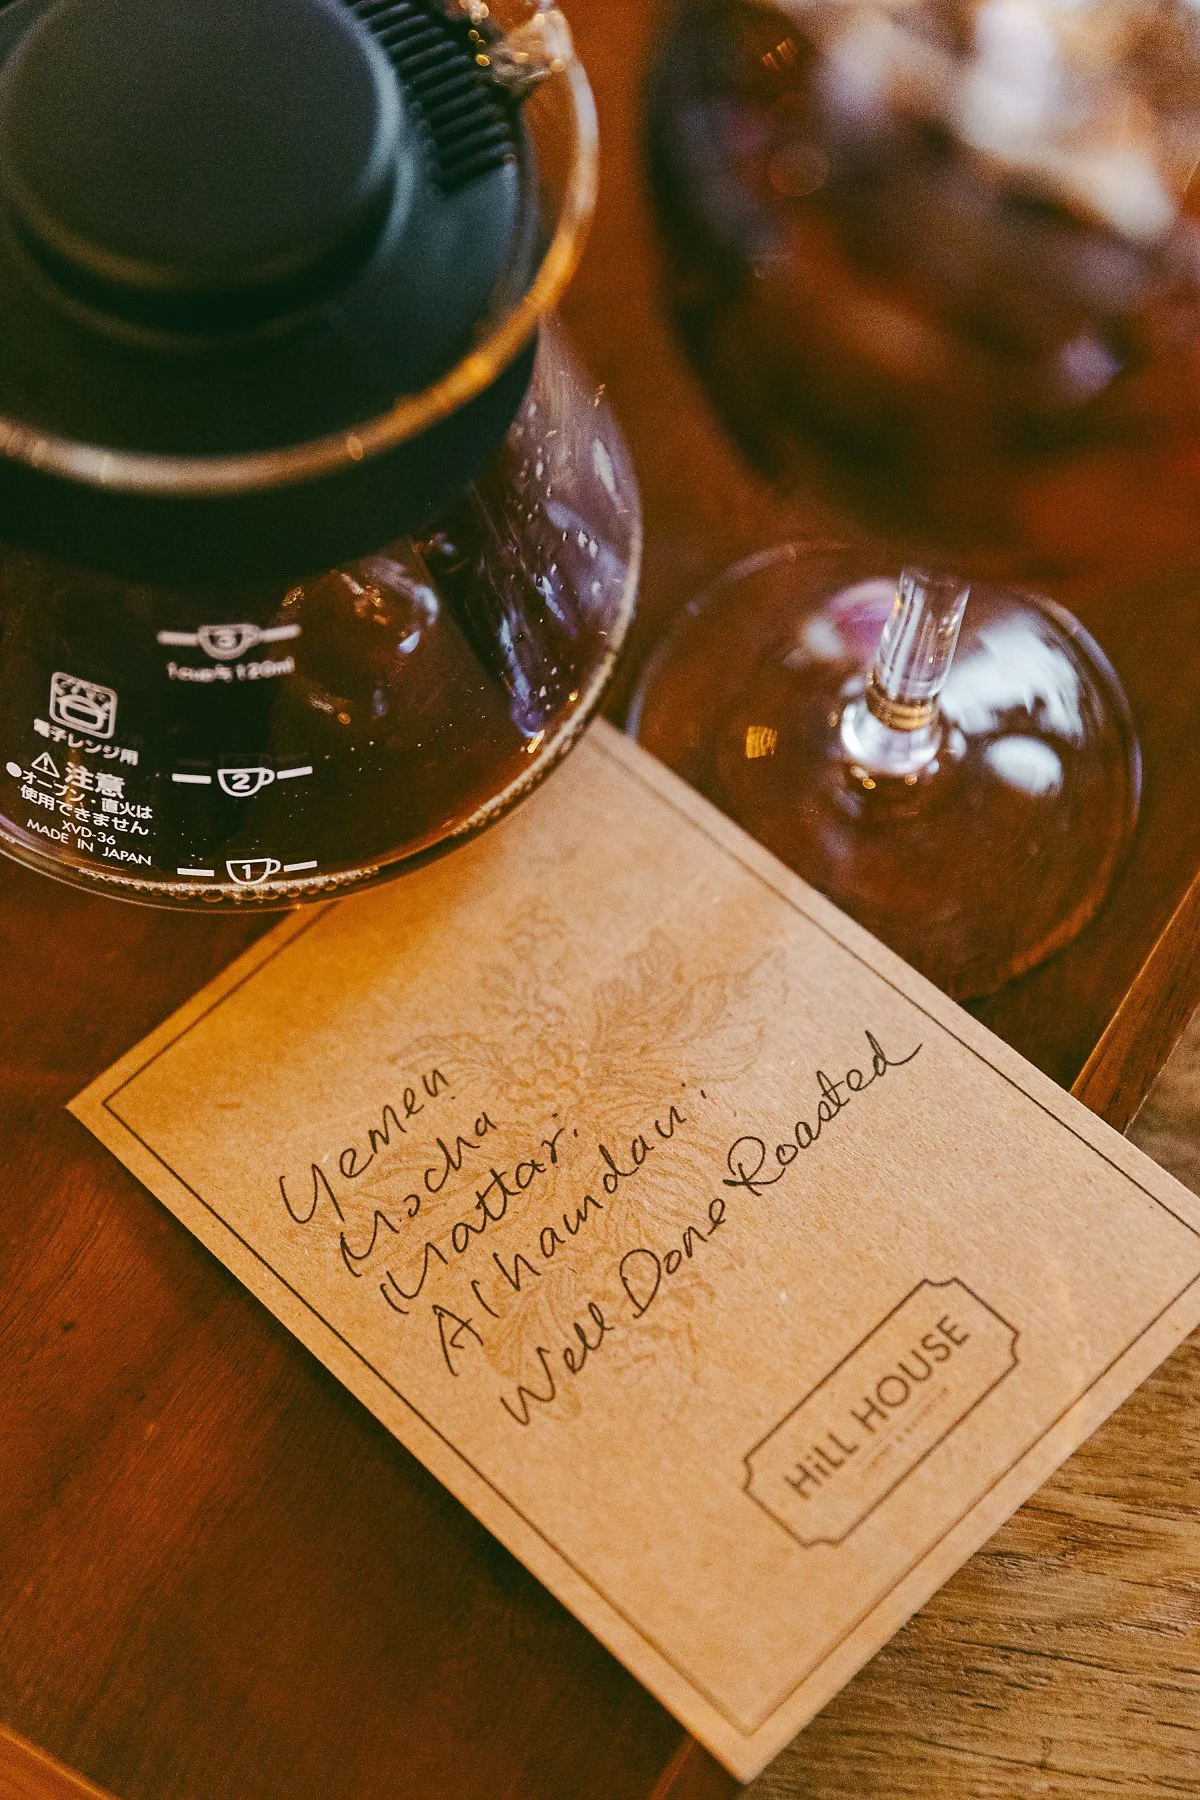 3
1cup≒120ml
電子レンジ用
注意
●オーブン・直火は
使用できません
XVD-36
MADE IN JAPAN
2
1
Yemen
Mocha
Mattari
Alhamdani
Well Done Roasted
HiLL HOUSE